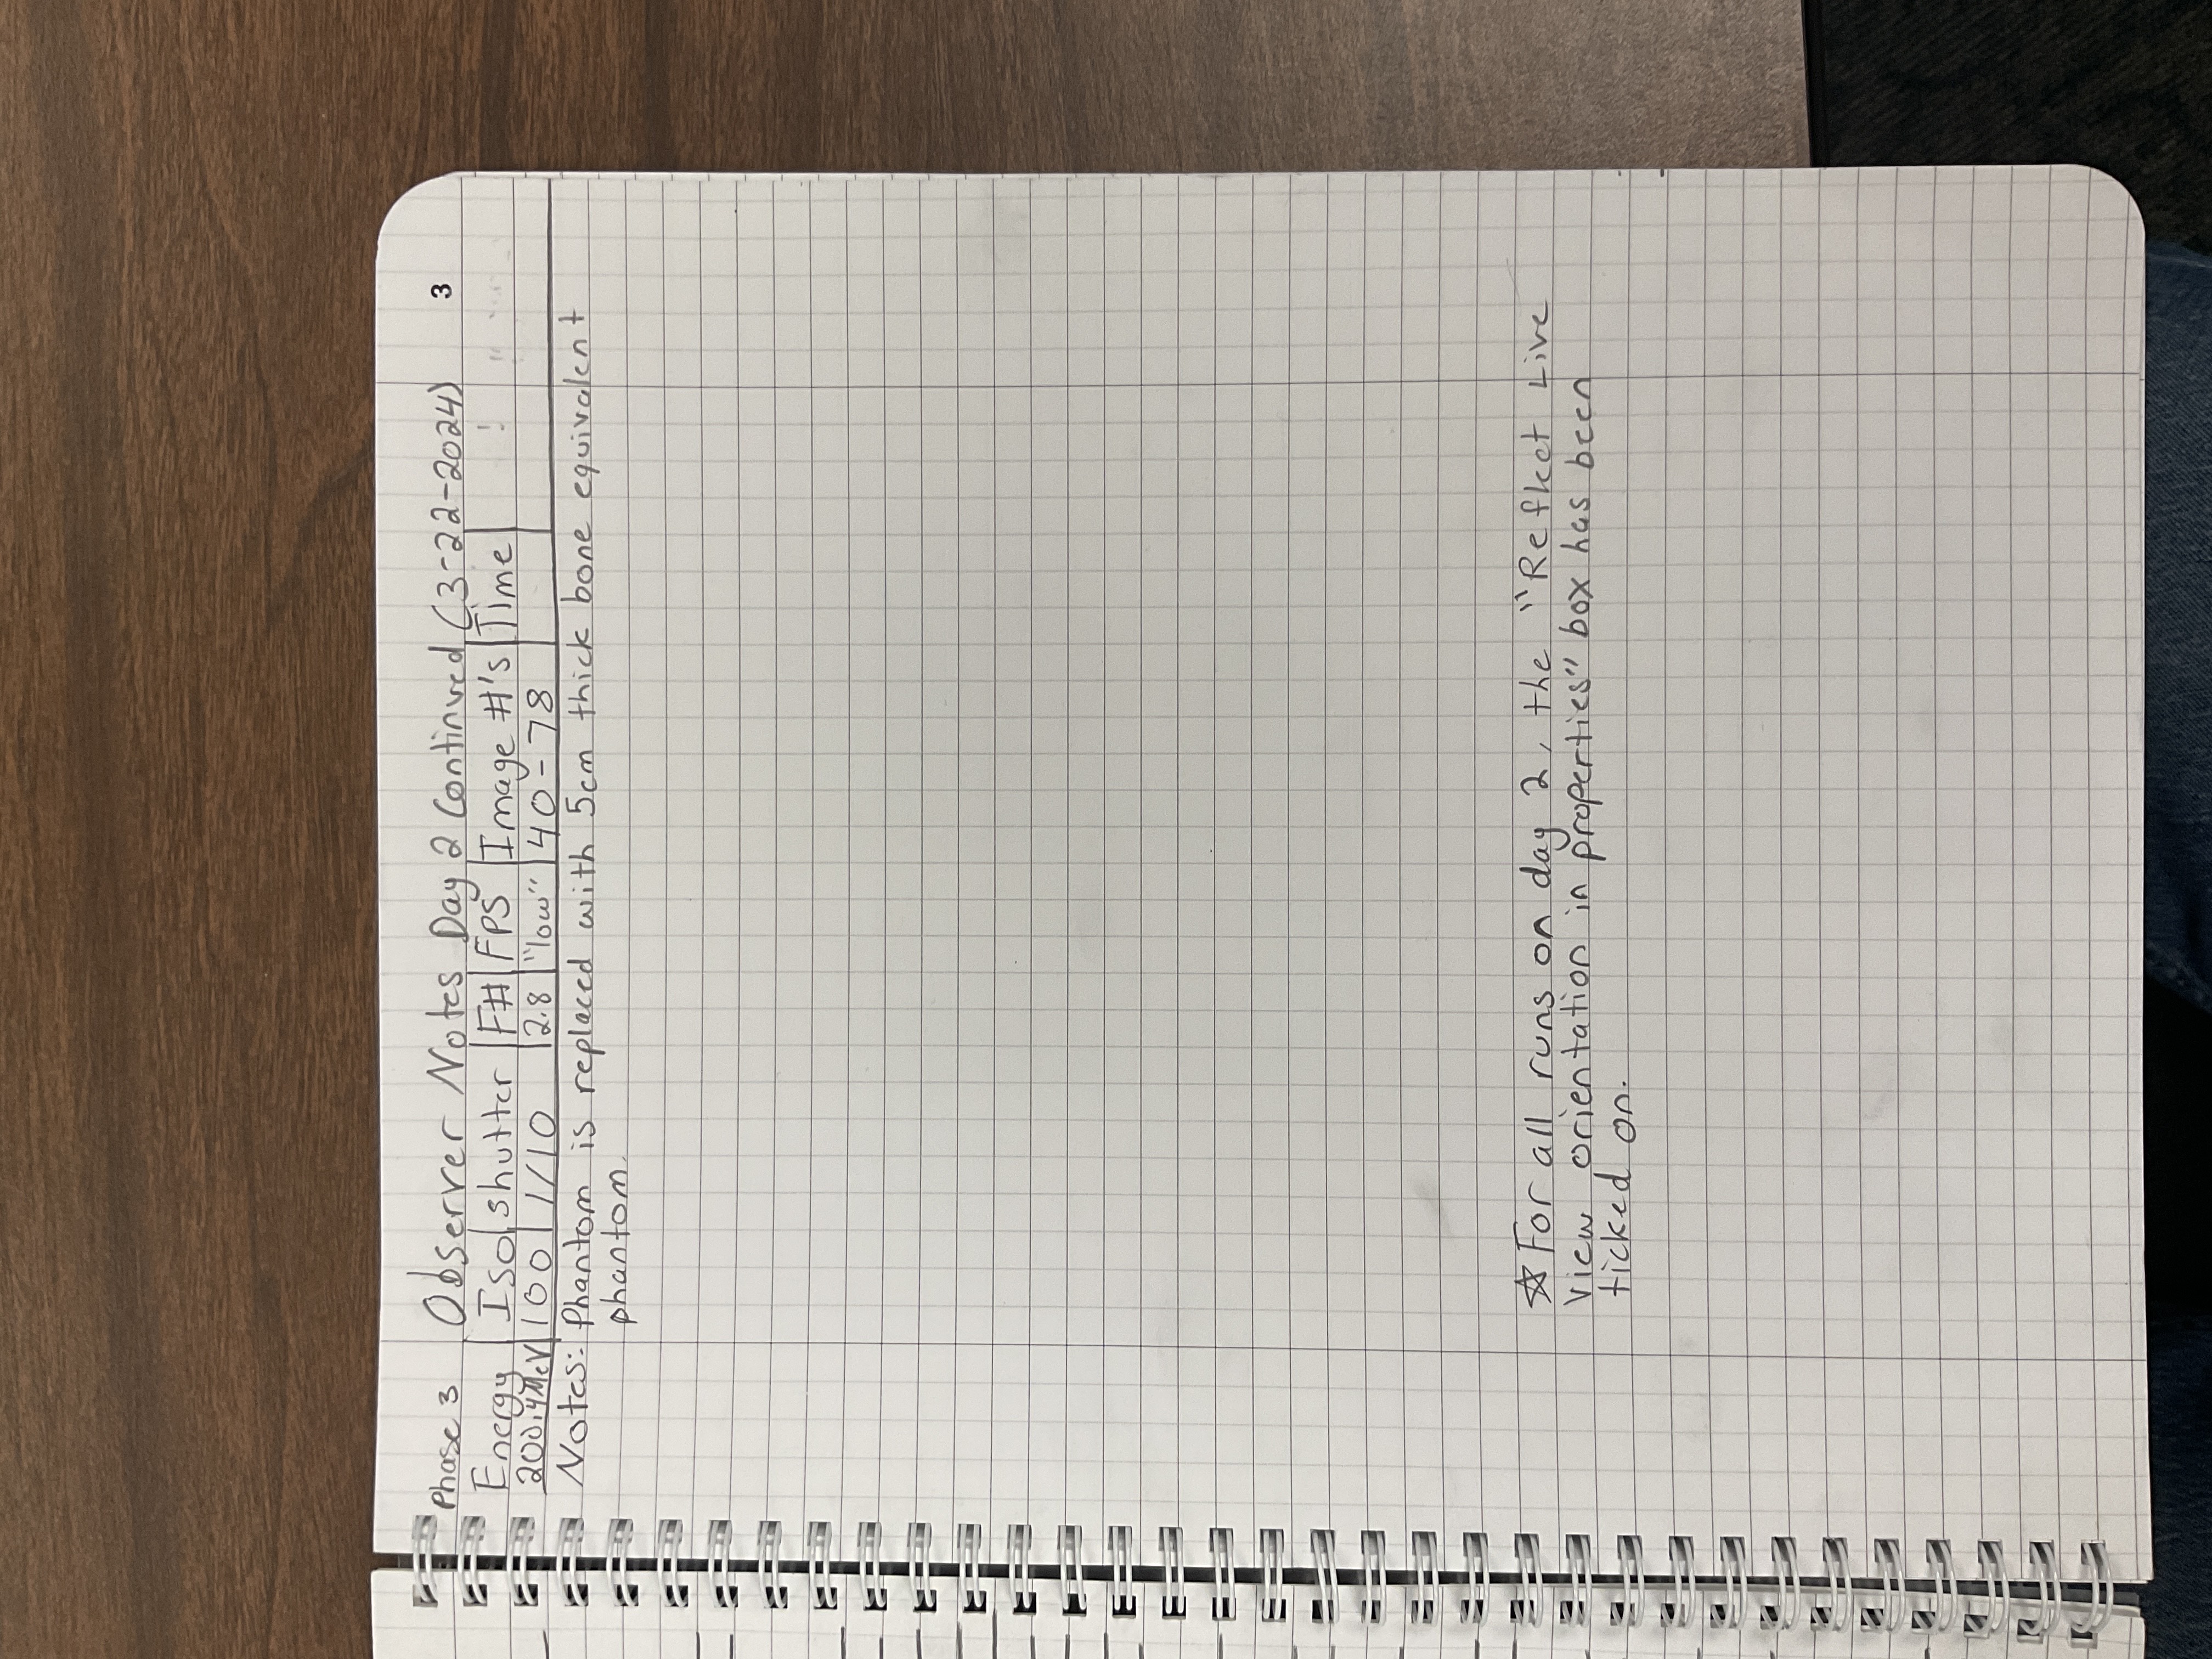 Phase 3 Observer Notes Day 2 Continued (3-22-2024) 3
Energy Iso shutter F# FPS Image #'s Time
200.4MeV 100 1/10 2.8 "low" 40-78
Notes: Phantom is replaced with 5cm thick bone equivalent
phantom.
☆ For all runs on day 2, the "Reflect Live
View orientation in properties" box has been
ticked on.